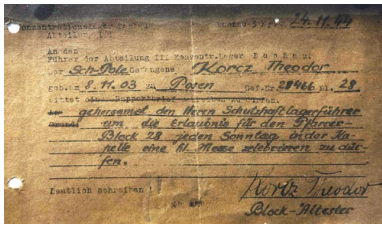 Konzentrationslager Dachau 3 K, 24.11.44
Abteilung III
An den
Führer der Abteilung III Konzentr.Lager Dachau.
Der Sch-Pole Gefangene Korcz Theodor
geb.am 8.11.03 in Posen Gef.Nr. 28466 Bl. 28
bittet
gehorsamst den Herrn Schutzhaftlagerführer
um die Erlaubnis für den Pfarrer-
Block 28 jeden Sonntag in der Ka-
pelle eine hl. Messe zelebrieren zu dür-
fen.
Deutlich schreiben !
Korcz Teodor
Block-Ältester